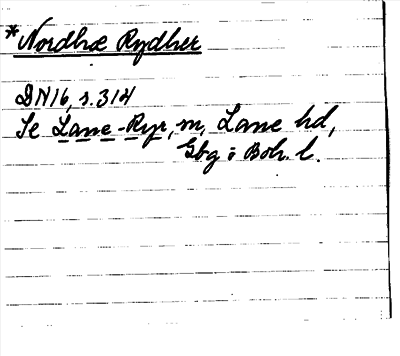 *Nordhræ Rydher
DN16, s. 314
Se Lane-Ryr, sn, Lane hd,
Gbg o Boh. l.